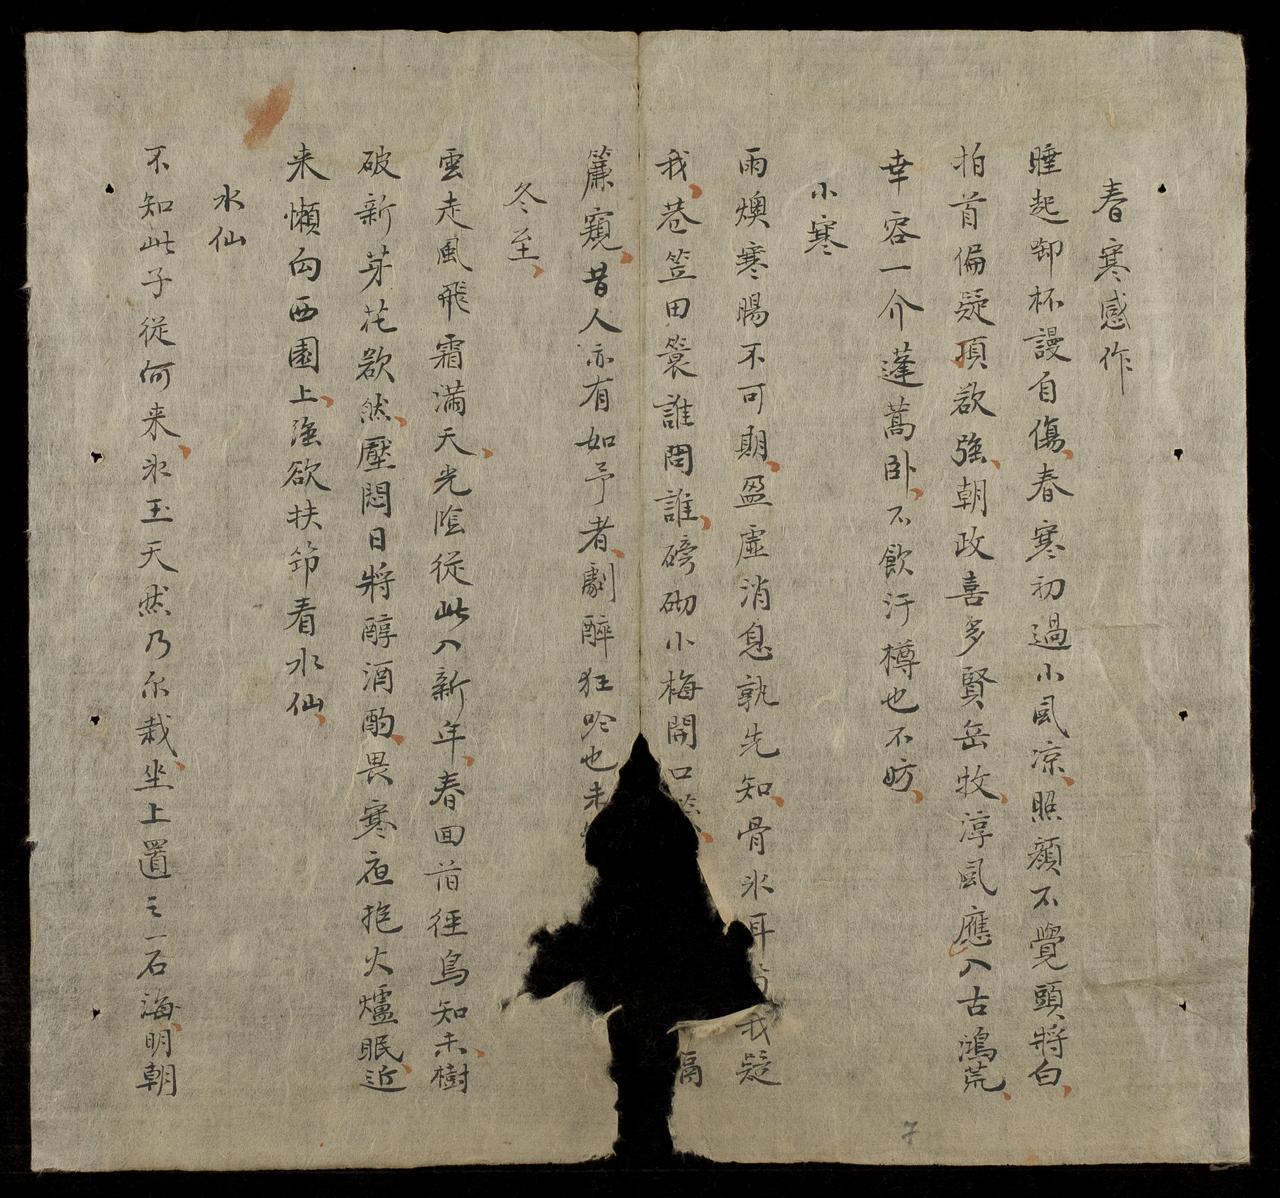 春寒感作
睡起卸杯謾自傷春寒初過小風凉照顔不覺頭將白
拍首偏疑項欲強朝政喜多賢岳牧淳風應入古鴻荒
幸容一介蓬蒿卧不飲汙樽也不妨
小寒
雨燠寒暘不可期盈虛消息孰先知骨氷耳 我疑
我巷笠田簑誰問誰磅砌小梅開口 隔
簾窺昔人亦有如予者劇醉狂吟也未
冬至
雲走風飛霜滿天光陰從此入新年春回莦徑鳥知未樹
破新芽花欲然壓悶日將醇酒酌畏寒夜抱火爐眠近
来懶向西園上強欲扶笻看水仙
水仙
不知此子從何来氷玉天然乃尓栽坐上置之一石海明朝
7